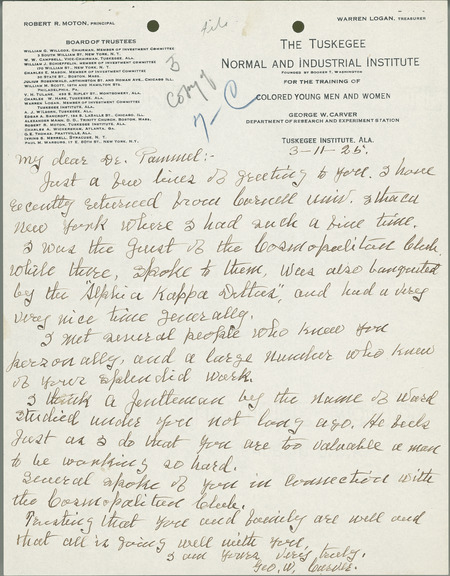 ROBERT R. MOTON, PRINCIPAL
WARREN LOGAN, TREASURER
File
BOARD OF TRUSTEES
WILLIAM G. WILLCOX, CHAIRMAN, MEMBER OF INVESTMENT COMMITTEE
3 SOUTH WILLIAM ST., NEW YORK, N. Y.
W. W. CAMPBELL, VICE-CHAIRMAN, TUSKEGEE, ALA.
WILLIAM J. SCHIEFFELIN, MEMBER OF INVESTMENT COMMITTEE
170 WILLIAM ST., NEW YORK, N. Y.
CHARLES E. MASON, MEMBER OF INVESTMENT COMMITTEE
30 STATE ST., BOSTON, MASS.
JULIUS ROSENWALD, ARTHINGTON ST. AND HOMAN AVE., CHICAGO, ILL.
PHILADELPHIA, PA.
CHARLES W. HARE, TUSKEGEE, ALA.
WARREN LOGAN, MEMBER OF INVESTMENT COMMITTEE
TUSKEGEE INSTITUTE, ALA.
A. J. WILBORN, TUSKEGEE, ALA.
EDGAR A. BANCROFT, 134 S. LASALLE ST., CHICAGO, ILL.
ALEXANDER MANN, D. D., TRINITY CHURCH, BOSTON, MASS.
ROBERT R. MOTON, TUSKEGEE INSTITUTE, ALA.
CHARLES A. WICKERSHAM, ATLANTA, GA.
G. S. THOMAS, PRATTVILLE, ALA.
PAUL M. WARBURG, 17 E. 80TH ST., NEW YORK, N. Y.
Copy
THE TUSKEGEE
NORMAL AND INDUSTRIAL INSTITUTE
FOUNDED BY BOOKER T. WASHINGTON
FOR THE TRAINING OF
COLORED YOUNG MEN AND WOMEN
GEORGE W. CARVER
DEPARTMENT OF RESEARCH AND EXPERIMENT STATION
TUSKEGEE INSTITUTE, ALA.
3-11-25.
My dear Dr. Pammel:-
Just a few lines of greeting to you. I have
recently returned from Cornell Univ. Ithaca
New York where I had such a fine time.
I was the guest of the Cosmopolitan Club,
while there, spoke to them, was also banqueted
by the "Alpha Kappa Deltas", and had a very
very nice time generally.
I met several people who knew you
personally, and a large number who knew
of your splendid work.
I think a gentleman by the name of Ward
studied under you not long ago. He feels
just as I do that you are too valuable a man
to be working so hard.
Several spoke of you in connection with
the Cosmopolitan Club.
Trusting that you and family are well and
that all is going well with you,
I am yours very truly,
Geo. W. Carver.